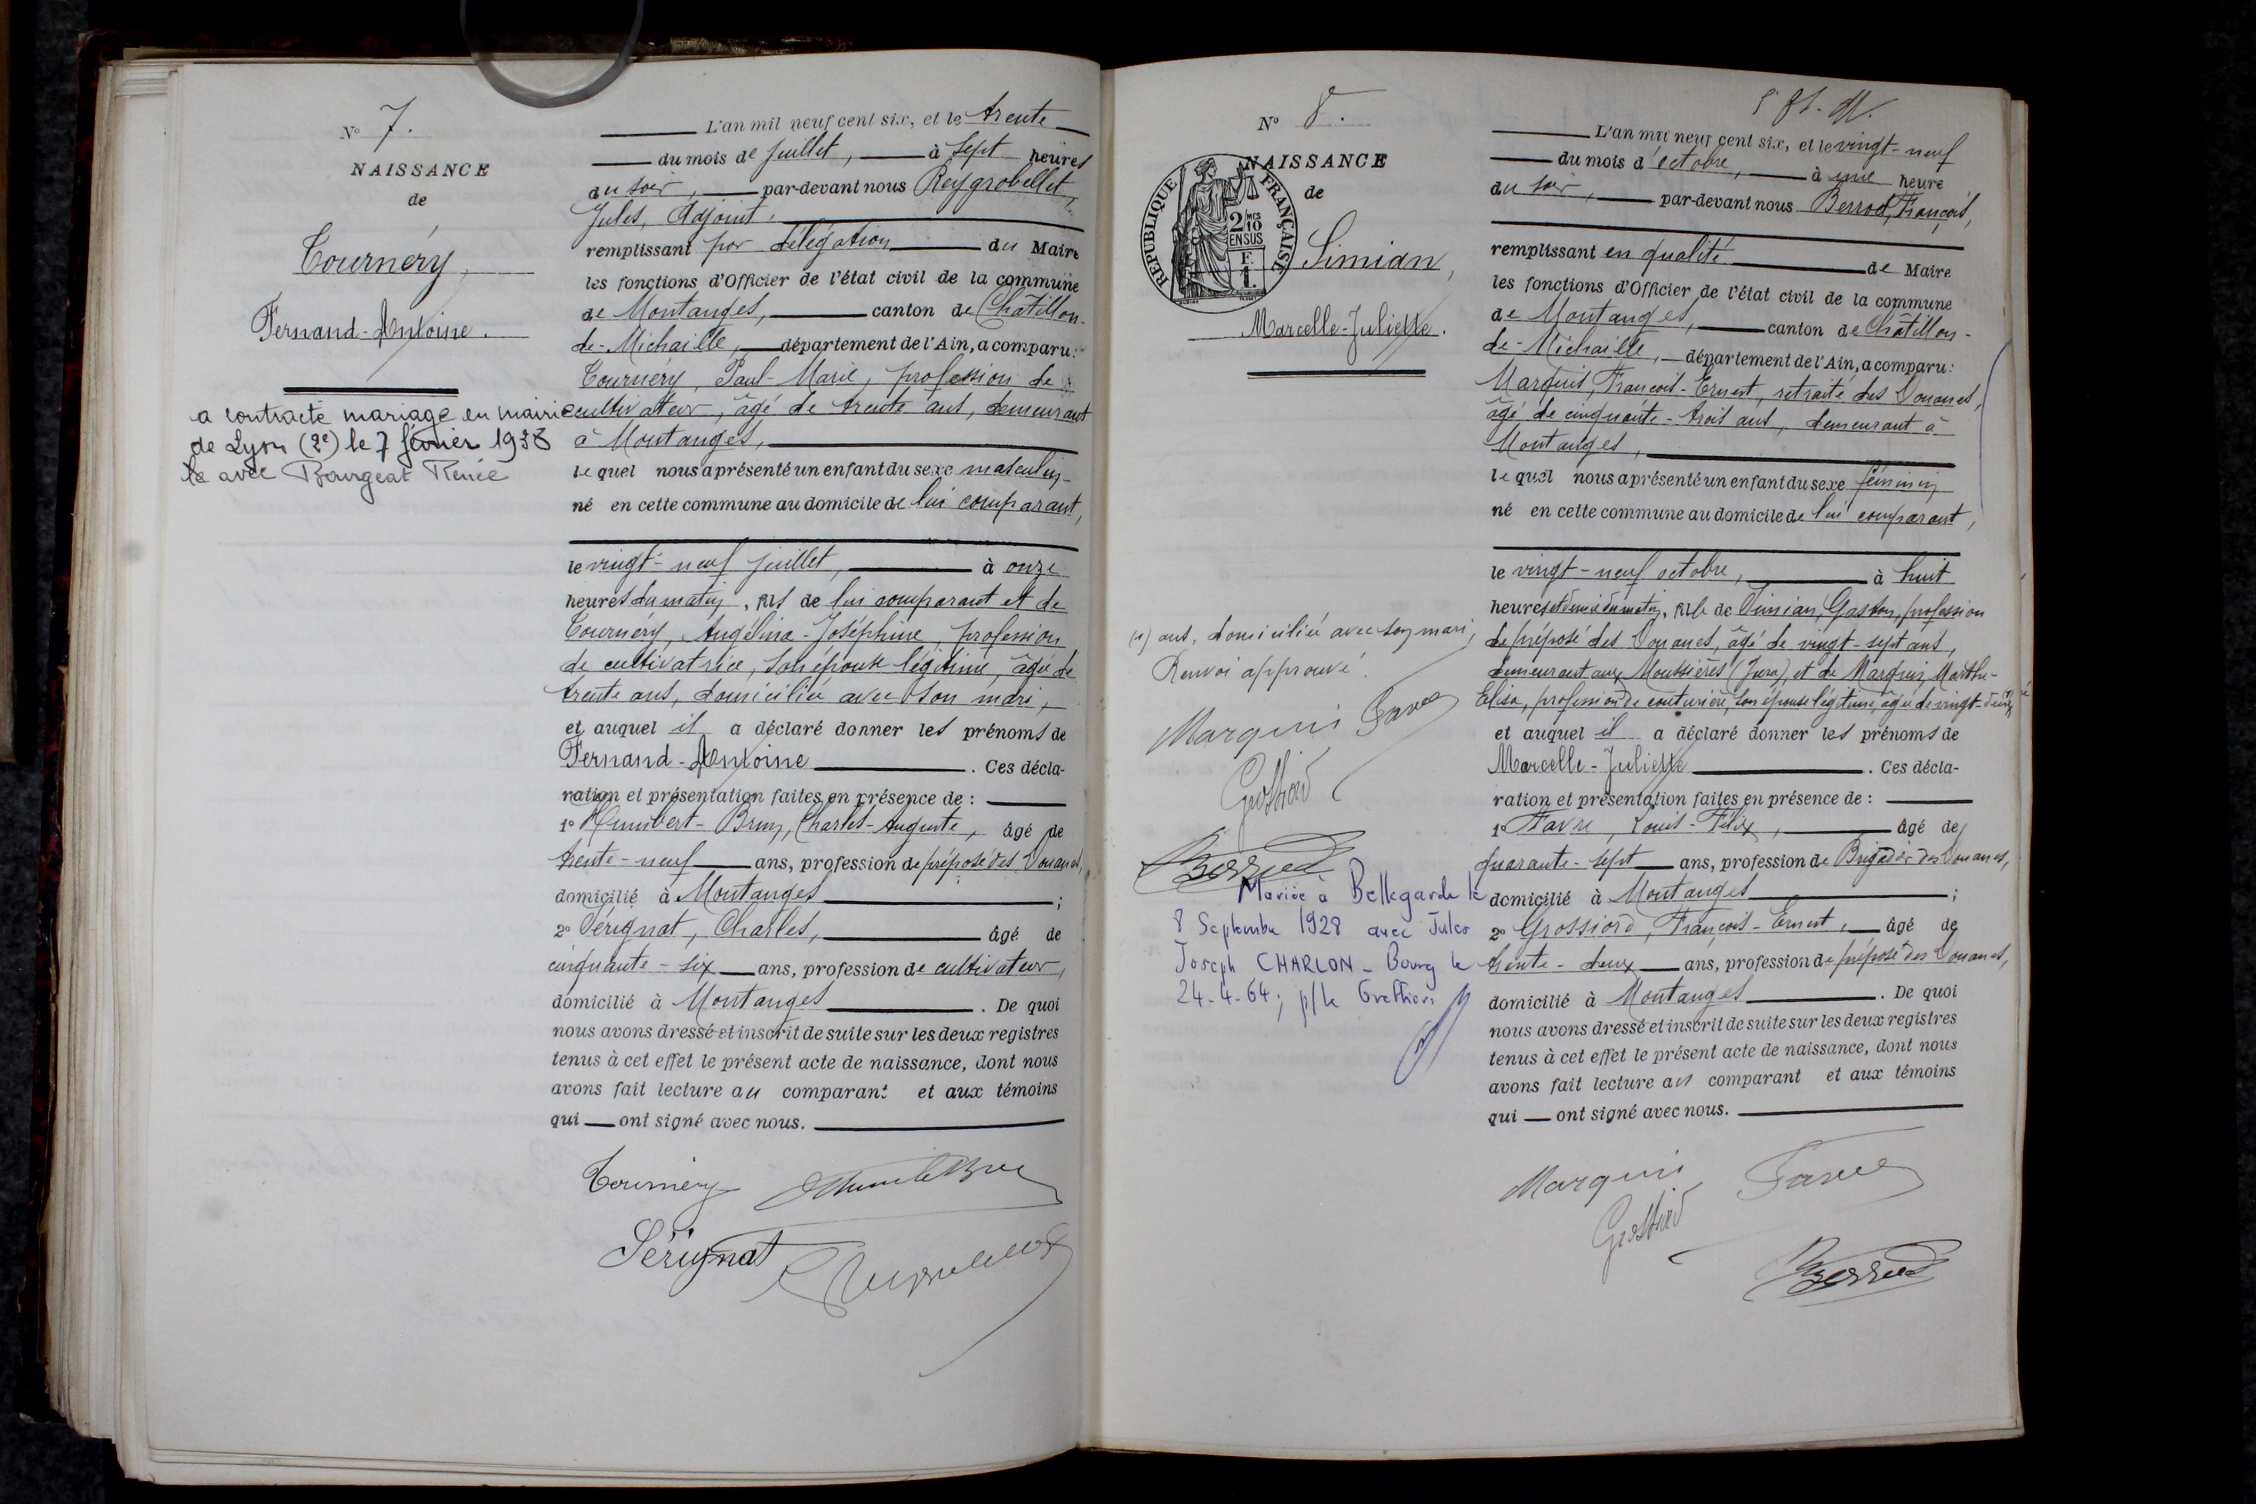 N° 7.
NAISSANCE
de
Tournéry,
Fernand-Antoine.
a contracté mariage en mairie
de Lyon (2e) le 7 février 1938
avec Bourgeat Renée
L'an mil neuf cent six, et le trente
du mois de juillet, à sept heures
du soir, par-devant nous Reygrobellet,
Jules, Adjoint,
remplissant par délégation du Maire
les fonctions d'Officier de l'état civil de la commune
de Montanges, canton de Châtillon-
de-Michaille, département de l'Ain, a comparu:
Tournéry, Paul-Marie, profession de
cultivateur, âgé de trente ans, demeurant
à Montanges,
lequel nous a présenté un enfant du sexe masculin
né en cette commune au domicile de lui comparant,
le vingt-neuf juillet, à onze
heures du matin, fils de lui comparant et de
Tournéry, Angélina-Joséphine, profession
de cultivatrice, son épouse légitime, âgée de
trente ans, domiciliée avec son mari,
et auquel il a déclaré donner les prénoms de
Fernand-Antoine. Ces décla-
ration et présentation faites en présence de :
1° Humbert-Brun, Charles-Auguste, âgé de
trente-neuf ans, profession de préposé des Douanes,
domicilié à Montanges ;
2° Sérignat, Charles, âgé de
cinquante-six ans, profession de cultivateur,
domicilié à Montanges. De quoi
nous avons dressé et inscrit de suite sur les deux registres
tenus à cet effet le présent acte de naissance, dont nous
avons fait lecture au comparant et aux témoins
qui ont signé avec nous.
Tournéry
Sérignat
N° 8.
NAISSANCE
de
RÉPUBLIQUE FRANÇAISE
2/10 MES
EN SUS
F.
1.
Simian,
Marcelle-Juliette.
(1) ans, domiciliée avec son mari,
Renvoi approuvé.
Marquis Favre
Grossiord
Berrod
Mariée à Bellegarde le
8 Septembre 1928 avec Jules
Joseph CHARLON - Bourg le
24-4-64; p/le Greffier:
L'an mil neuf cent six, et le vingt-neuf
du mois d'octobre, à une heure
du soir, par-devant nous Berrod, François,
remplissant en qualité de Maire
les fonctions d'Officier de l'état civil de la commune
de Montanges, canton de Châtillon-
de-Michaille, département de l'Ain, a comparu:
Marquis, François-Ernest, retraité des Douanes,
âgé de cinquante-trois ans, demeurant à
Montanges,
lequel nous a présenté un enfant du sexe féminin
né en cette commune au domicile de lui comparant,
le vingt-neuf octobre, à huit
heures et demie du matin, fille de Simian, Gaston, profession
de préposé des Douanes, âgé de vingt-sept ans,
demeurant aux Moussières (Jura), et de Marquis, Marthe-
Elisa, profession de couturière, son épouse légitime, âgée de vingt-deux (1)
et auquel il a déclaré donner les prénoms de
Marcelle-Juliette. Ces décla-
ration et présentation faites en présence de :
1° Favre, Louis-Félix, âgé de
quarante-sept ans, profession de Brigadier des Douanes,
domicilié à Montanges ;
2° Grossiord, François-Ernest, âgé de
trente-deux ans, profession de préposé des Douanes,
domicilié à Montanges. De quoi
nous avons dressé et inscrit de suite sur les deux registres
tenus à cet effet le présent acte de naissance, dont nous
avons fait lecture au comparant et aux témoins
qui ont signé avec nous.
Marquis Favre
Grossiord
Berrod